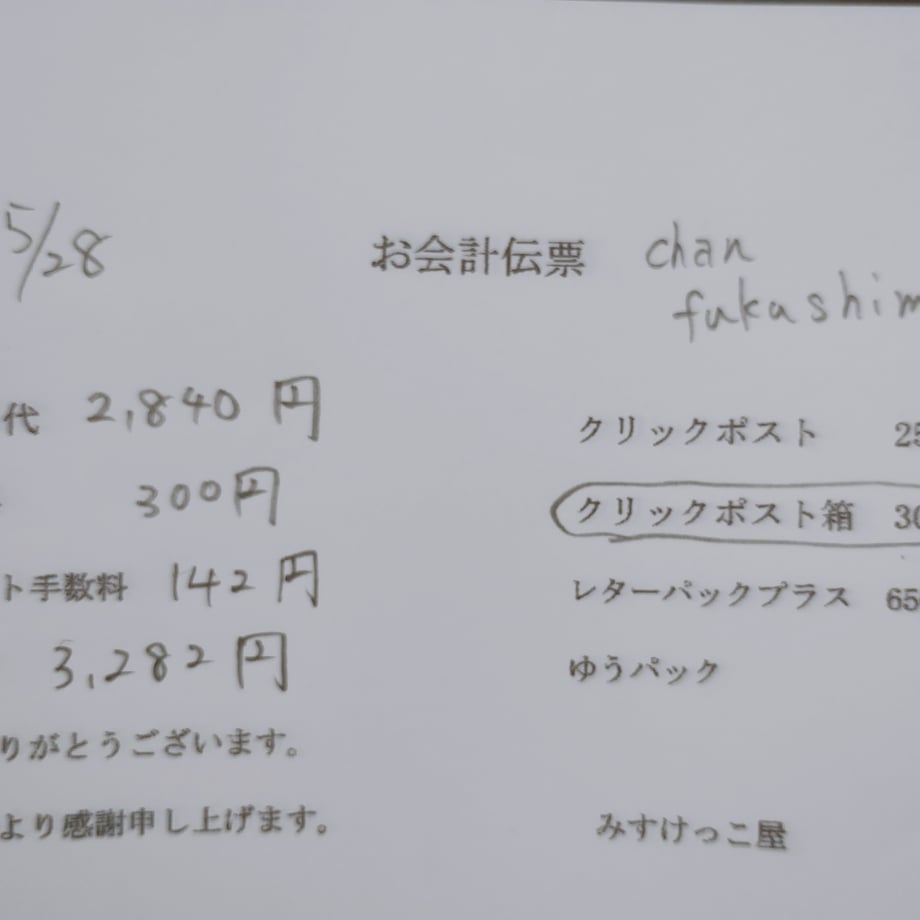 5/28
お会計伝票
chan
fukashim
代 2,840円
300円
ト手数料 142円
3,282円
りがとうございます。
より感謝申し上げます。
クリックポスト 25
クリックポスト箱 30
レターパックプラス 65
ゆうパック
みすけっこ屋